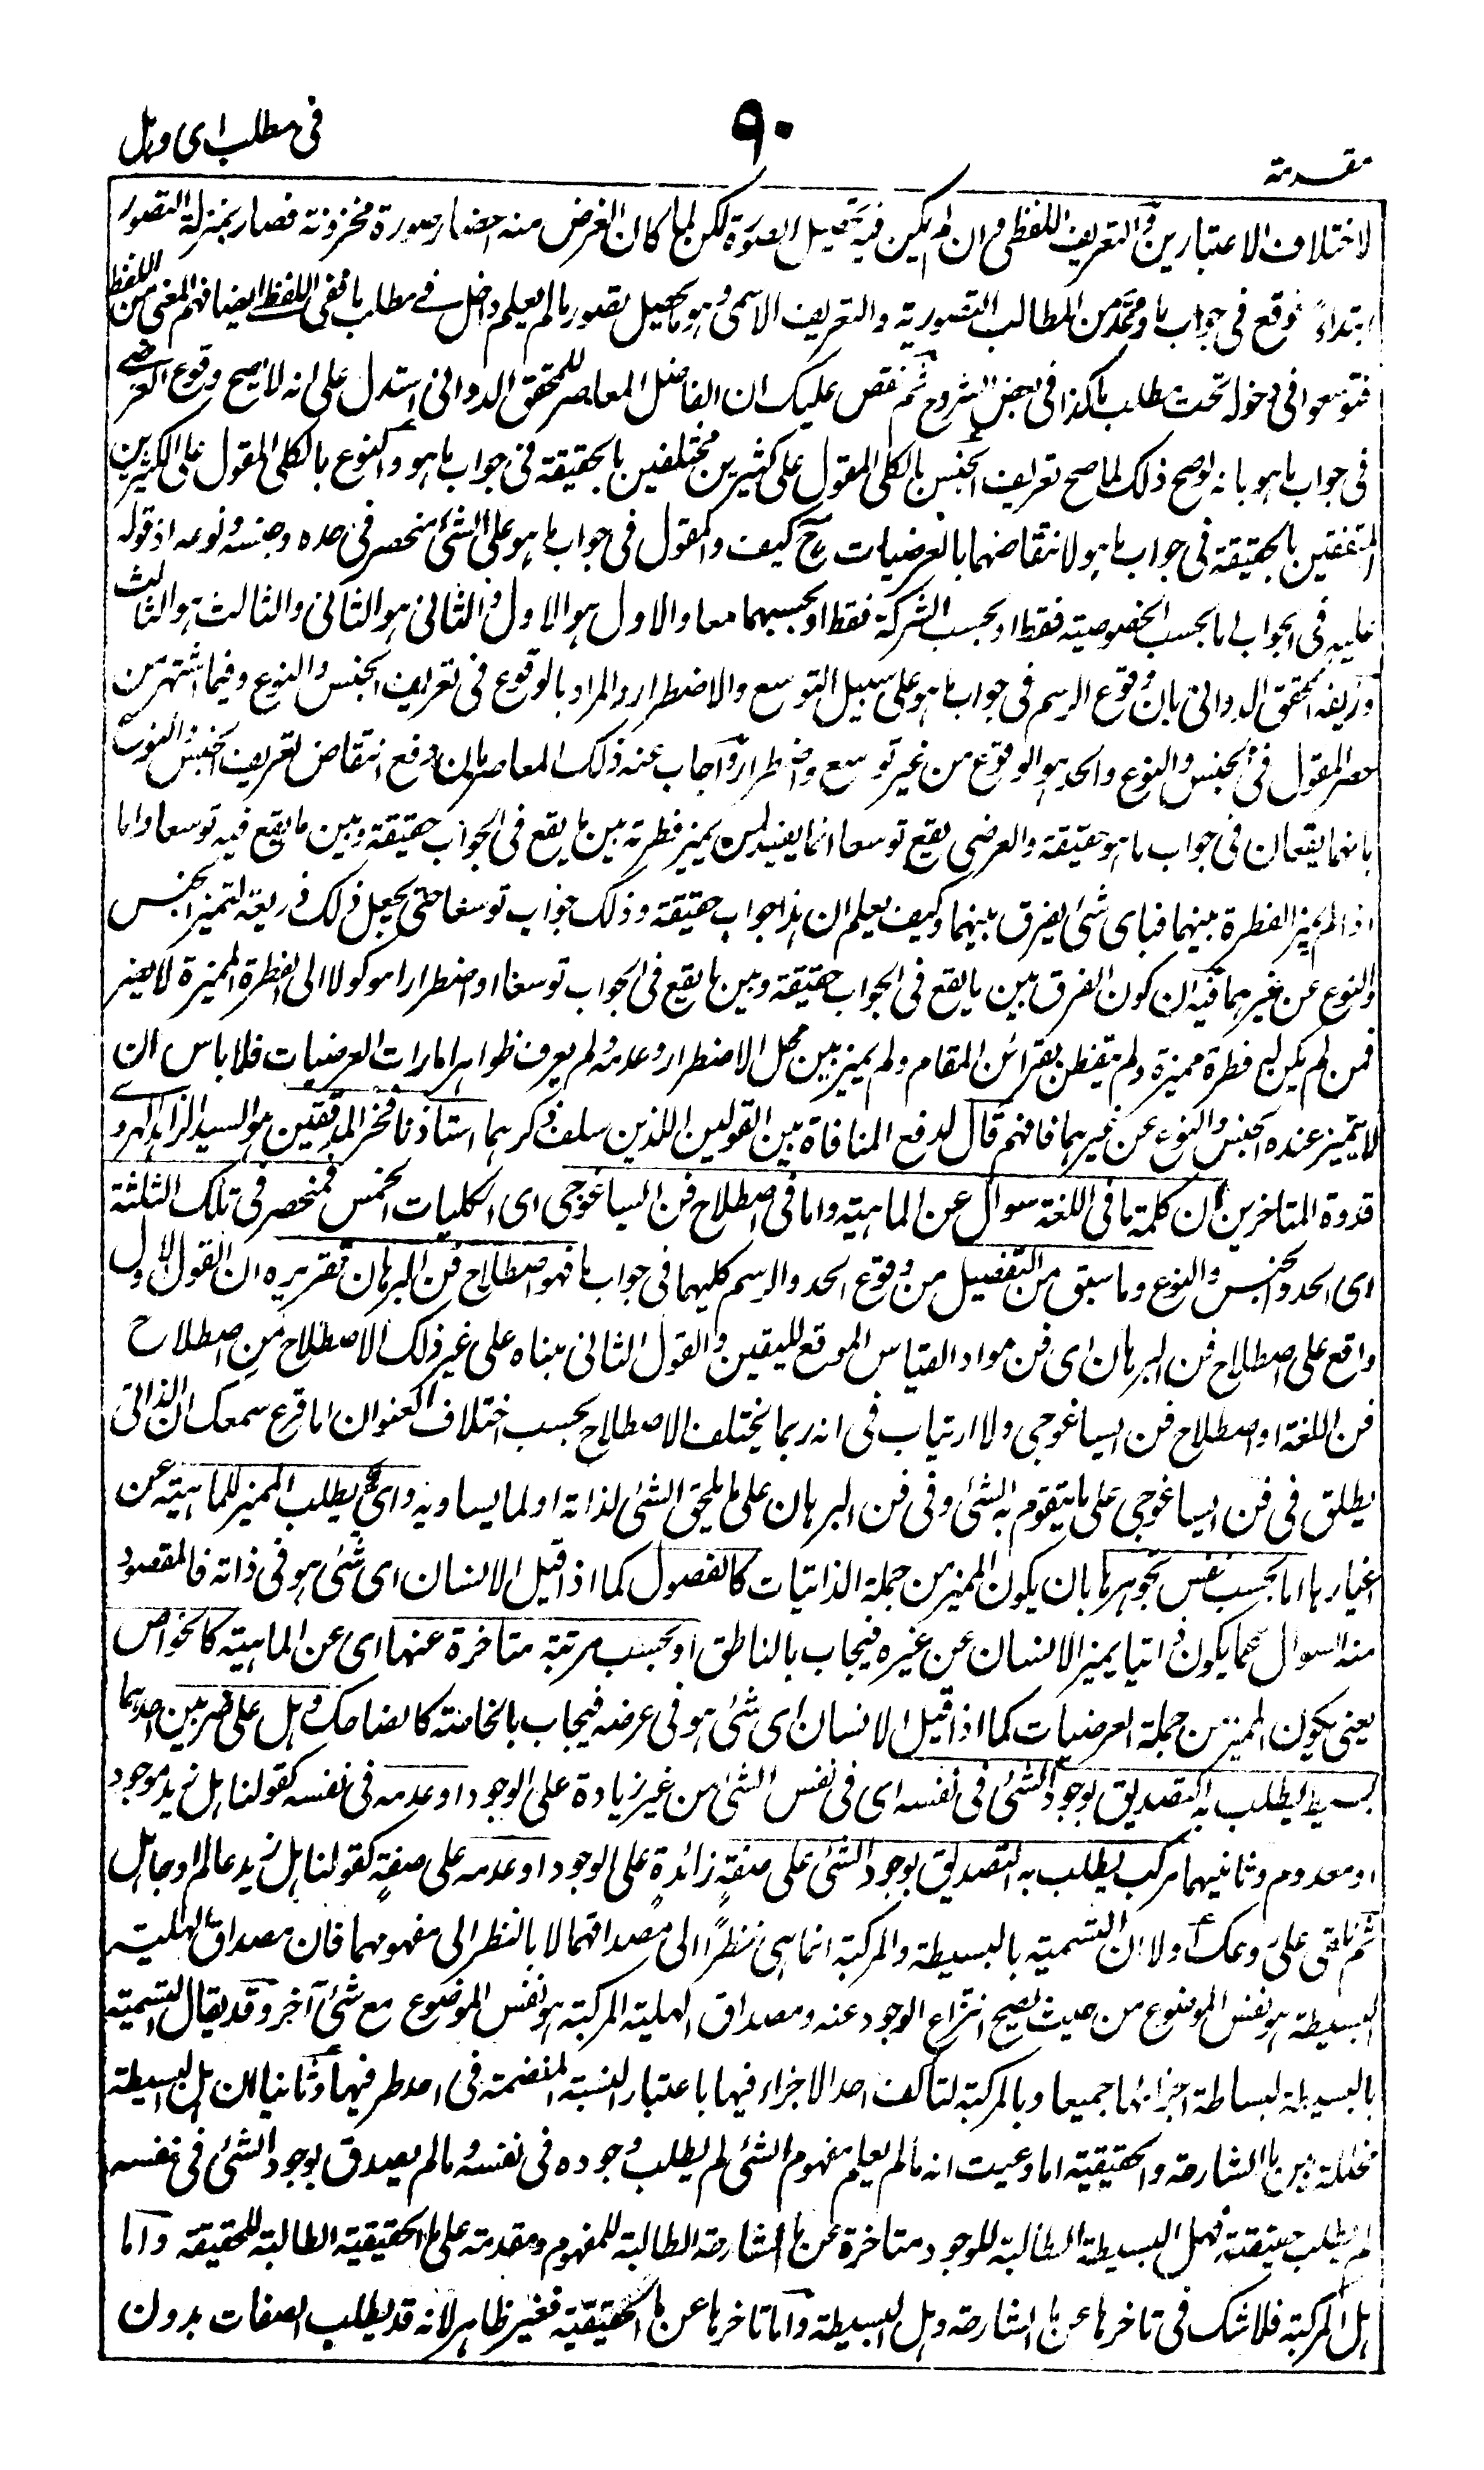 مقدمة
٩٠
فى مطلب اى وهل
لاختلاف الاعتبارين والتعريف اللفظى وان لم يكن فيه تحصيل الصورة لكن لما كان الغرض منه احضار صورة مخزونة فصار بمنزلة التصور
ابتداءً فوقع فى جواب ما وعُدّ من المطالب التصورية والتعريف الاسمى وهو ما تحصيل تصور ما لم يعلم داخل فى مطلب ما ففى اللفظى ايضا فهم المعنى من اللفظ
فتوسعوا فى دخوله تحت مطلب ما كذا فى بعض الشروح ثم نقص عليك ان الفاضل المعاصر للمحقق الدوانى استدل على انه لا يصح وقوع العرضى
فى جواب ما هو بانه لو صح ذلك لما صح تعريف الجنس بالكلى المقول على كثيرين مختلفين بالحقيقة فى جواب ما هو والنوع بالكلى المقول على الكثيرين
المتفقين بالحقيقة فى جواب ما هو لانتقاضهما بالعرضيات ح كيف والمقول فى جواب ما هو على الشئ منحصر فى حده وجنسه ونوعه اذ قوله
عليه فى الجواب اما بحسب الخصوصية فقط او بحسب الشركة فقط او بحسبهما معا والاول هو الاول والثانى هو الثانى والثالث هو الثالث
وزيفه المحقق الدوانى بان وقوع الرسم فى جواب ما هو على سبيل التوسع والاضطرار والمراد بالوقوع فى تعريف الجنس والنوع وفيما اشتهر من
حصر المقول فى الجنس والنوع والحد هو الوقوع من غير توسع واضطرار واجاب عنه ذلك المعاصر بان دفع انتقاض تعريف الجنس والنوع
بانهما يقعان فى جواب ما هو حقيقة والعرضى يقع توسعا انما يفيد لمن يميز فطرته بين ما يقع فى الجواب حقيقة وبين ما يقع فيه توسعا واما
اذا لم يميز الفطرة بينهما فباى شئ يفرق بينهما وكيف يعلم ان هذا جواب حقيقة وذلك جواب توسعا حتى يجعل ذلك ذريعة لتميز الجنس
والنوع عن غيرهما فيه ان كون الفرق بين ما يقع فى الجواب حقيقة وبين ما يقع فى الجواب توسعا او اضطرارا موكولا الى الفطرة المميزة لا يضر
فمن لم يكن له فطرة مميزة ولم يتفطن بقرائن المقام ولم يميز بين محل الاضطرار وعدمه ولم يعرف ظواهر امارات العرضيات فلا باس ان
لا يتميز عنده الجنس والنوع عن غيرهما فافهم قال لدفع المنافاة بين القولين اللذين سلف ذكرهما استاذنا فخر المدققين هو السيد الزاهد الهروى
قدوة المتاخرين ان كلمة ما فى اللغة سوال عن الماهية واما فى اصطلاح فن ايساغوجى اى الكليات الخمس فمنحصر فى تلك الثلثة
اى الحد والجنس والنوع وما سبق من التفصيل من وقوع الحد والرسم كليهما فى جواب ما فهو اصطلاح فن البرهان تقريره ان القول الاول
واقع على اصطلاح فن البرهان اى فن مواد القياس الموقع لليقين والقول الثانى مبناه على غير ذلك الاصطلاح من اصطلاح
فن اللغة او اصطلاح فن ايساغوجى ولا ارتياب فى انه ربما يختلف الاصطلاح بحسب اختلاف العنوان اما قرع سمعك ان الذاتى
يطلق فى فن ايساغوجى على ما يتقوم به الشئ وفى فن البرهان على ما يلحق الشئ لذاته او لما يساويه واى يطلب المميز للماهية عن
اغيارها اما بحسب نفس تجوهرها بان يكون المميز من جملة الذاتيات كالفصول كما اذا قيل الانسان اى شئ هو فى ذاته فالمقصود
منه السوال عما يكون ذاتيا يميز الانسان عن غيره فيجاب بالناطق او بحسب مرتبة متاخرة عنها اى عن الماهية كالخواص
يعنى يكون المميز من جملة العرضيات كما اذا قيل الانسان اى شئ هو فى عرضه فيجاب بالخاصة كالضاحك وهل على ضربين احدهما
بسيط يطلب به التصديق بوجود الشئ فى نفسه اى فى نفس الشئ من غير زيادة على الوجود او عدمه فى نفسه كقولنا هل زيد موجود
او معدوم وثانيهما مركب يطلب به التصديق بوجود الشئ على صفةٍ زائدةٍ على الوجود او عدمه على صفةٍ كقولنا هل زيد عالم او جاهل
ثم نلقى على روعك اولا ان التسمية بالبسيطة والمركبة انما هى نظراً الى مصداقهما لا بالنظر الى مفهومهما فان مصداق الهلية
البسيطة هو نفس الموضوع من حيث يصح انتزاع الوجود عنه ومصداق الهلية المركبة هو نفس الموضوع مع شئ آخر وقد يقال التسمية
بالبسيطة لبساطة اجزائها جميعا وبالمركبة لتالف احد الاجزاء فيها باعتبار النسبة المنضمة فى احد طرفيها وثانيا ان هل البسيطة
متخللة بين ما الشارحة والحقيقية اما وعيت انه ما لم يعلم مفهوم الشئ لم يطلب وجوده فى نفسه وما لم يصدق بوجود الشئ فى نفسه
لم يطلب حقيقته فهل البسيطة الطالبة للوجود متاخرة عن ما الشارحة الطالبة للمفهوم ومقدمة على ما الحقيقية الطالبة للحقيقة واما
هل المركبة فلا شك فى تاخرها عن ما الشارحة وهل البسيطة واما تاخرها عن ما الحقيقية فغير ظاهر لانه قد يطلب الصفات بدون